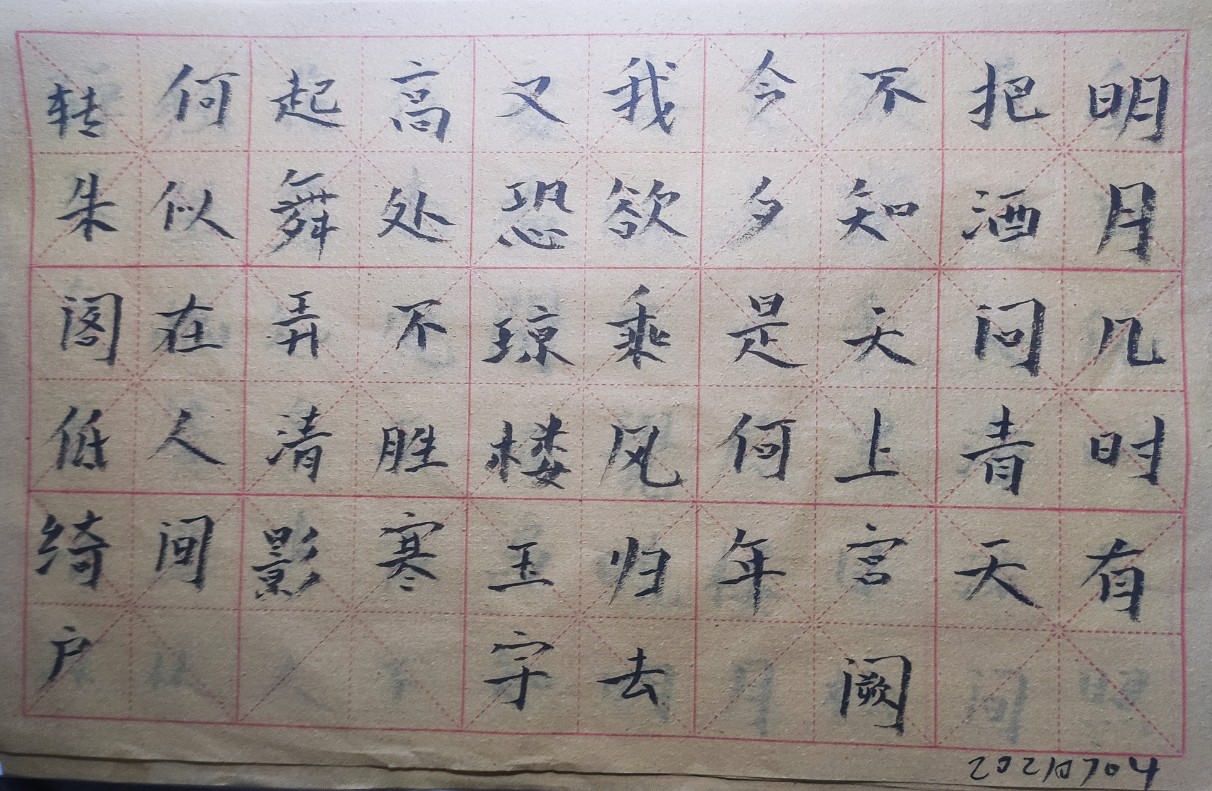 明月几时有
把酒问青天
不知天上宫阙
今夕是何年
我欲乘风归去
又恐琼楼玉宇
高处不胜寒
起舞弄清影
何似在人间
转朱阁低绮户
20210704